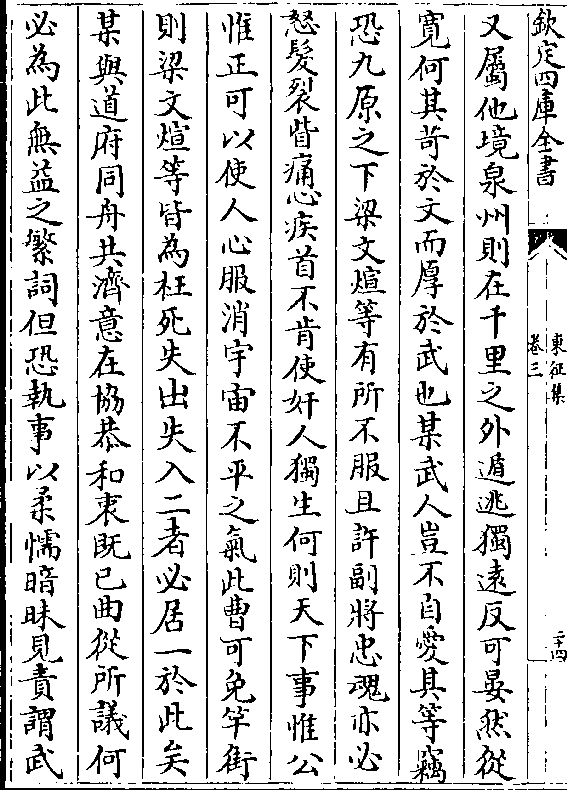 欽定四庫全書
東征集
卷三
二十四
又屬他境泉州則在千里之外遁逃獨遠反可晏然從
寛何其苛於文而厚於武也某武人豈不自愛其等竊
恐九原之下梁文煊等有所不服且許副將忠魂亦必
怒髮裂眥痛心疾首不肯使奸人獨生何則天下事惟公
惟正可以使人心服消宇宙不平之氣此曹可免竿街
則梁文煊等皆為枉死失出失入二者必居一於此矣
某與道府同舟共濟意在協恭和衷既已曲從所議何
必為此無益之繁詞但恐執事以柔懦暗昧見責謂武